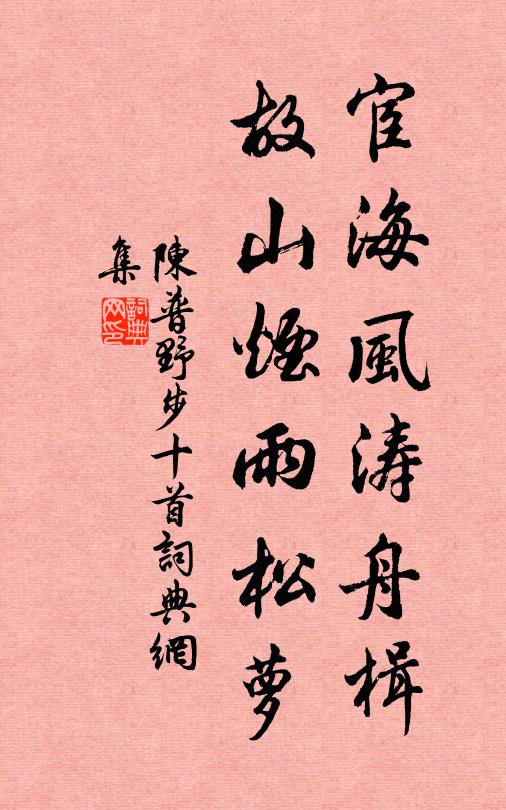 宦海風涛舟楫
故山煙雨松萝
陳普野步十首詞典網
集
詞典网印